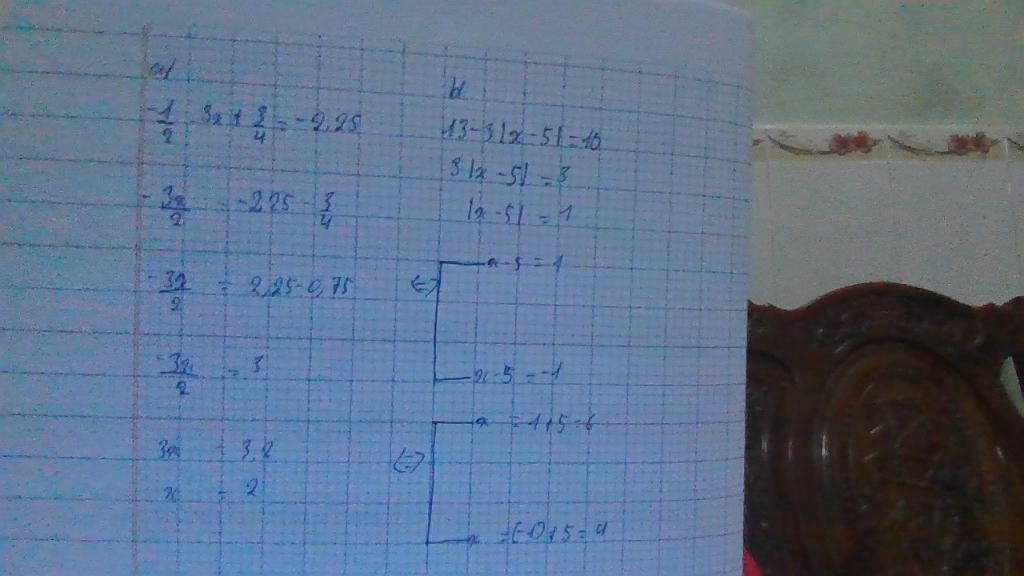 a/
-1/2 . 3x + 3/4 = -2,25
-3x/2 = -2,25 - 3/4
-3x/2 = 2,25 - 0,75
-3x/2 = 3
3x = 3,2
x = 2
b/
13 - 3|x - 5| = 10
3|x - 5| = 3
|x - 5| = 1
(=) x - 5 = 1
x - 5 = -1
(=) x = 1 + 5 = 6
x = (-1) + 5 = 4